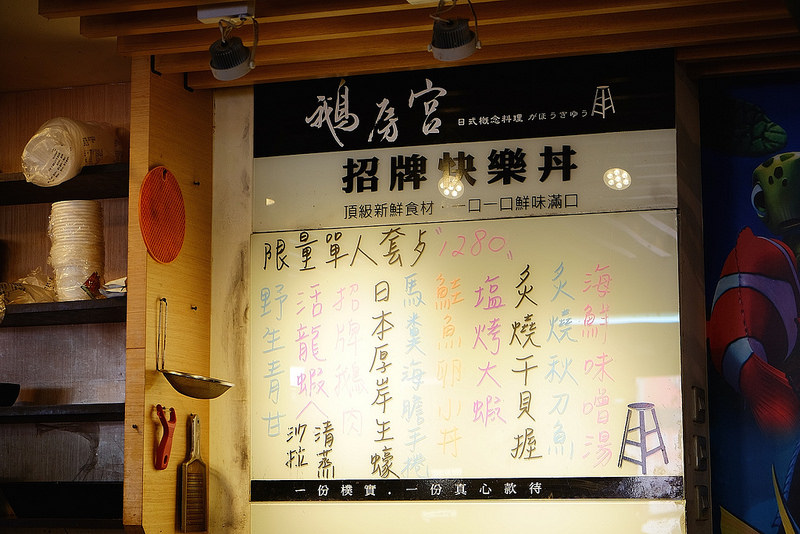 鵝房宮
日式概念料理 がほうきゅう
招牌快樂丼
頂級新鮮食材．一口一口鮮味滿口
限量單人套歺"1280"
海鮮味噌湯
炙燒秋刀魚
炙燒干貝握
塩烤大蝦
鮭魚卵小丼
馬糞海膽手捲
日本厚岸生蠔
招牌鵝肉
活龍蝦
清蒸
沙拉
野生青甘
一份樸實．一份真心款待